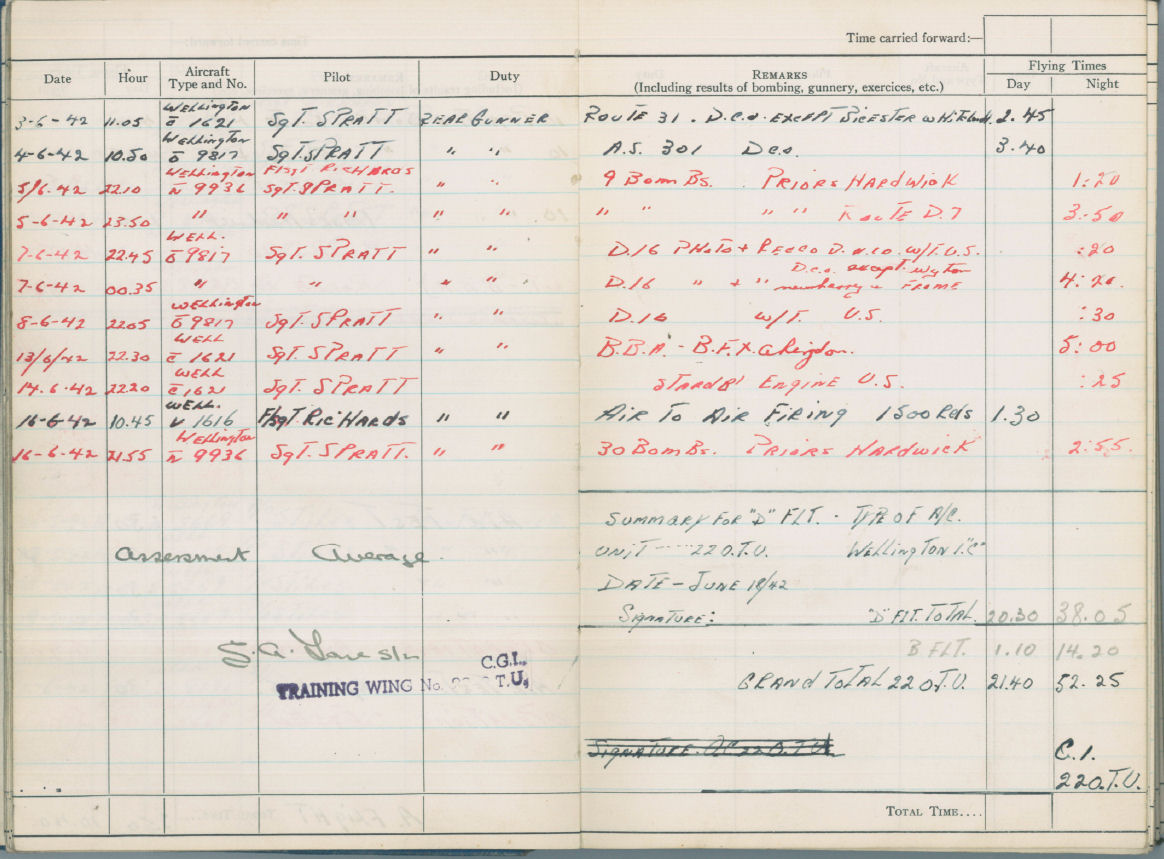 Time carried forward:—
Date Hour Aircraft Type and No. Pilot Duty REMARKS (Including results of bombing, gunnery, exercices, etc.) Flying Times Day Night
3-6-42 11.05 WELLINGTON 1621 SgT. SPRATT REAR GUNNER ROUTE 31. D.C.O. EXCEPT BICESTER 2.45
4-6-42 10.50 WELLINGTON 9817 SgT. SPRATT " " A.S. 301 D.C.O. 3.40
5/6.42 22.10 WELLINGTON N 9936 F/SgT RICHARDS SgT. SPRATT. " " 9 BOMBS. PRIORS HARDWICK 1:20
5-6-42 23.50 " " " " " " " " " ROUTE D.7 3:50
7-6-42 22.45 WELL. 9817 SgT. SPRATT " " D.16 PHOTO + RECCO D.N.C.O. W/T. U.S. :20
7-6-42 00.35 " " " " D.16 " + " D.C.O. except wyton newberry FRAME 4:20.
8-6-42 2205 WELLINGTON 9817 SgT. SPRATT " " D.16 W/T. U.S. :30
13/6/42 22.30 WELL 1621 SgT. SPRATT " " B.B.A. - B.F.X. Abingdon. 5:00
14.6.42 2220 WELL 1621 SgT. SPRATT STARB'D ENGINE U.S. :25
16-6-42 10.45 WELL. V 1616 F/SgT. RICHARDS " " AIR TO AIR FIRING 1500 Rds 1.30
16-6-42 21.55 WELLINGTON N 9936 SgT. SPRATT. " " 30 BOMBS. PRIORS HARDWICK 2:55.
SUMMARY FOR "D" FLT. - TYPE OF A/C.
Assessment Average.
UNIT - 22 O.T.U. WELLINGTON 1."C"
DATE - JUNE 18/42
SIGNATURE: "D" FLT. TOTAL 20.30 38.05
B FLT. 1.10 14.20
C.G.I.,
TRAINING WING No. T.U.
GRAND TOTAL 22 O.T.U. 21.40 52.25
SIGNATURE. OC 22 O.T.U.
C.I.
22 O.T.U.
TOTAL TIME....